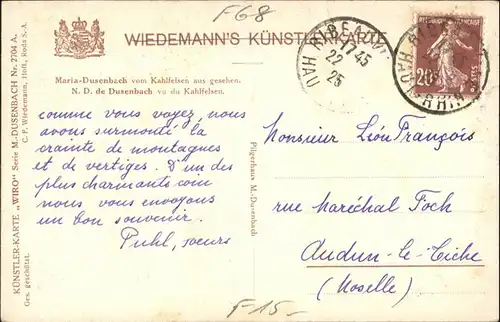 F68
WIEDEMANN'S KÜNSTLERKARTE
Maria-Dusenbach vom Kahlfelsen aus gesehen.
N. D. de Dusenbach vu du Kahlfelsen.
comme vous voyez, nous
avons surmonté la
crainte de montagnes
et de vertiges. D'un des
plus charmants coins
nous vous envoyons
un bon souvenir.
Puhl, sœurs
KÜNSTLER-KARTE „WIRO“ Serie M.-DUSENBACH Nr. 2704 A.
Ges. geschützt. C. F. Wiedemann, Hofl., Roda S. A.
Pilgerhaus M.-Dusenbach
RIBEAUV
17 45
22
25
HAU
REPUBLIQUE FRANÇAISE
20c
POSTES
HAU
RHIN
Monsieur Léon François
rue maréchal Foch
Audun-le-Tiche
(Moselle)
F-15-